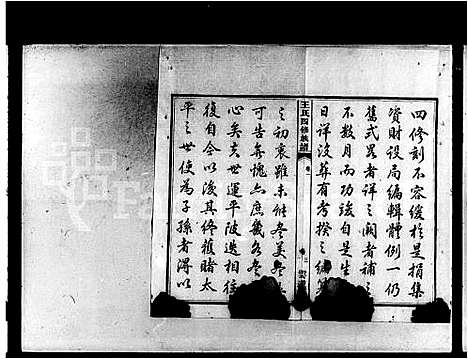 四修刻不容緩於是捐集
資財設局編輯體例一仍
舊式畧者詳之闕者補之
不數月而功竣自是生
日詳沒葬有考揆之
王氏四修族譜
之初衷雖未能盡美盡
可告無愧亦庶幾
心矣夫世運平陂迭相往
復自今以後其終獲睹太
平之世使為子孫者得以